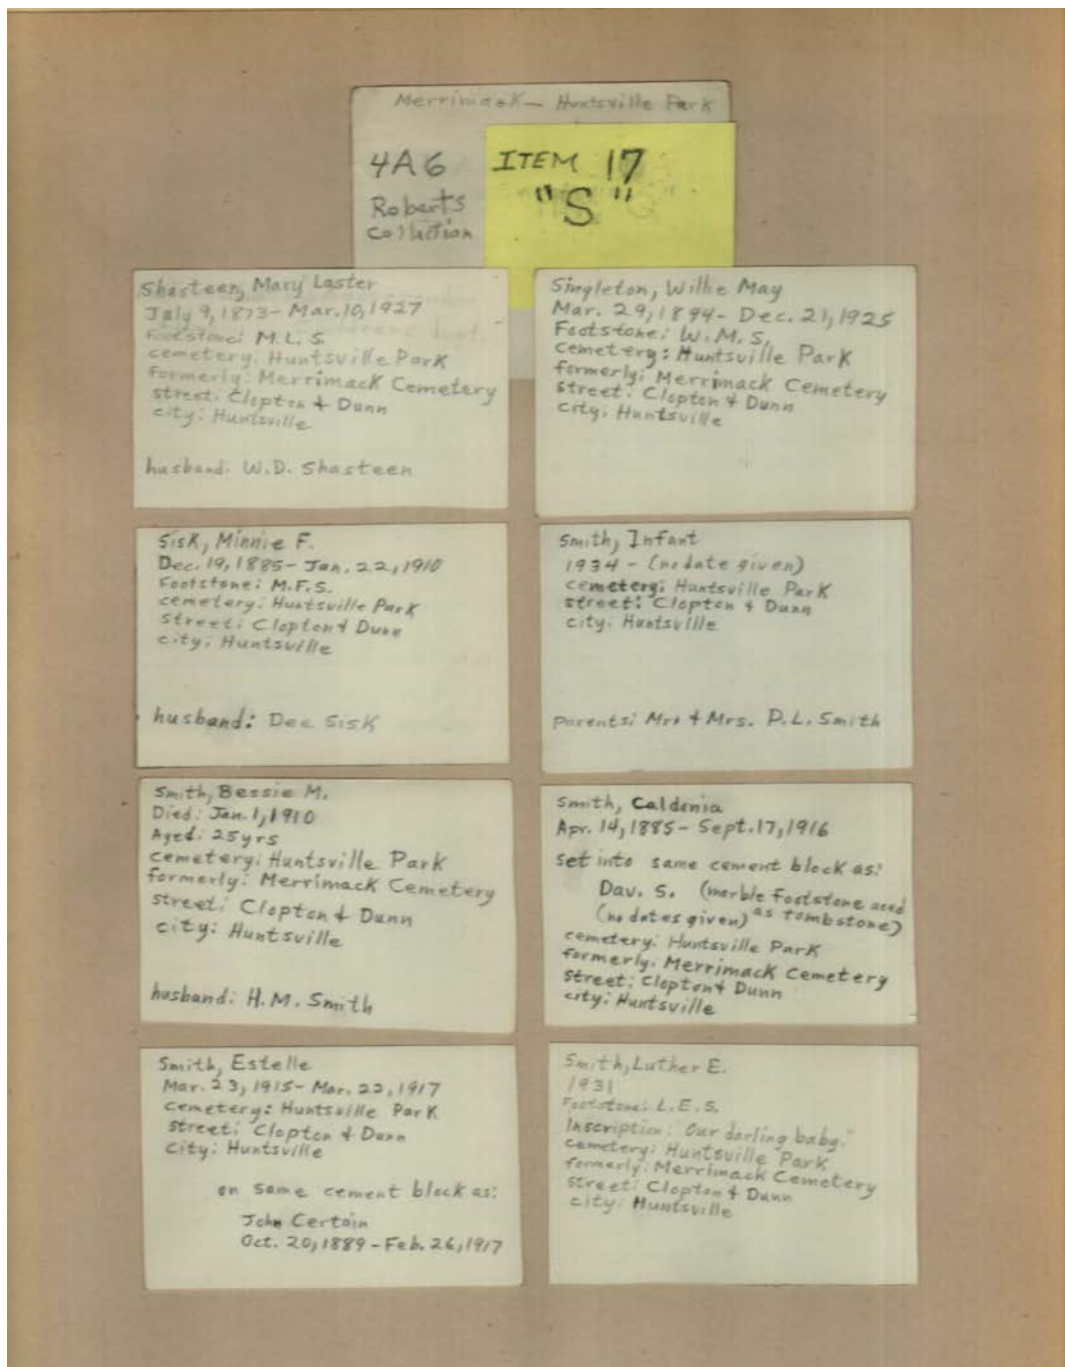 Merrimack - Huntsville Park
4A6
Roberts
Collection
ITEM 17
"S"
Shasteen, Mary Laster
July 9, 1873 - Mar. 10, 1927
Footstone: M.L.S.
cemetery: Huntsville Park
formerly: Merrimack Cemetery
street: Clopton & Dunn
city: Huntsville
husband: W.D. Shasteen
Singleton, Willie May
Mar. 29, 1894 - Dec. 21, 1925
Footstone: W.M.S.
Cemetery: Huntsville Park
formerly: Merrimack Cemetery
street: Clopton & Dunn
city: Huntsville
Sisk, Minnie F.
Dec. 19, 1885 - Jan. 22, 1910
Footstone: M.F.S.
cemetery: Huntsville Park
street: Clopton & Dunn
city: Huntsville
husband: Dee Sisk
Smith, Infant
1934 - (no date given)
cemetery: Huntsville Park
street: Clopton & Dunn
city: Huntsville
parents: Mr. & Mrs. P.L. Smith
Smith, Bessie M.
Died: Jan. 1, 1910
Aged: 25 yrs
cemetery: Huntsville Park
formerly: Merrimack Cemetery
street: Clopton & Dunn
city: Huntsville
husband: H.M. Smith
Smith, Caldonia
Apr. 14, 1885 - Sept. 17, 1916
set into same cement block as:
Dav. S. (marble footstone used
(no dates given) as tombstone)
cemetery: Huntsville Park
formerly: Merrimack Cemetery
street: Clopton & Dunn
city: Huntsville
Smith, Estelle
Mar. 23, 1915 - Mar. 22, 1917
Cemetery: Huntsville Park
street: Clopton & Dunn
City: Huntsville
on same cement block as:
John Certain
Oct. 20, 1889 - Feb. 26, 1917
Smith, Luther E.
1931
Footstone: L.E.S.
Inscription: "Our darling baby."
cemetery: Huntsville Park
formerly: Merrimack Cemetery
street: Clopton & Dunn
city: Huntsville